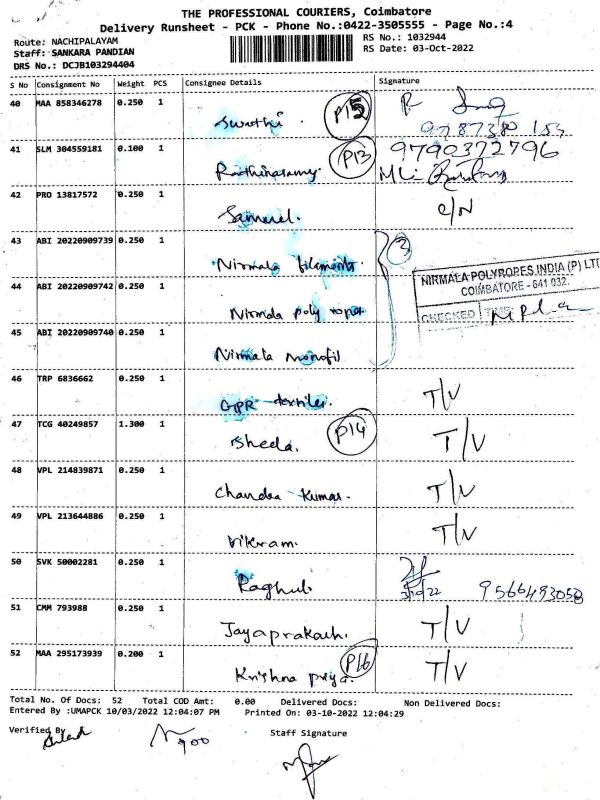 THE PROFESSIONAL COURIERS, Coimbatore
Delivery Runsheet - PCK - Phone No.:0422-3505555 - Page No.:4
Route: NACHIPALAYAM RS No.: 1032944
Staff: SANKARA PANDIAN RS Date: 03-Oct-2022
DRS No.: DCJB103294404
S No Consignment No Weight PCS Consignee Details Signature
40 MAA 858346278 0.250 1 Swathi. P15
41 SLM 304559181 0.100 1 Rathinasamy. P13 9790372796
42 PRO 13817572 0.250 1 Samuel. C/N
43 ABI 20220909739 0.250 1 Nirmala filaments 3
NIRMALA POLYROPES INDIA (P) LT
COIMBATORE - 641 032.
CHECKED
44 ABI 20220909742 0.250 1 Nirmala poly ropes
45 ABI 20220909740 0.250 1 Nirmala monofil
46 TRP 6836662 0.250 1 GPR textiles. T/V
47 TCG 40249857 1.300 1 Sheela. P14 T/V
48 VPL 214839871 0.250 1 Chandra Kumar. T/V
49 VPL 213644886 0.250 1 Vikram. T/V
50 SVK 50002281 0.250 1 Raghul. 3/10/22 9566493058
51 CMM 793988 0.250 1 Jayaprakash. T/V
52 MAA 295173939 0.200 1 Krishna priya. P16 T/V
Total No. Of Docs: 52 Total COD Amt: 0.00 Delivered Docs: Non Delivered Docs:
Entered By :UMAPCK 10/03/2022 12:04:07 PM Printed On: 03-10-2022 12:04:29
Verified By Staff Signature